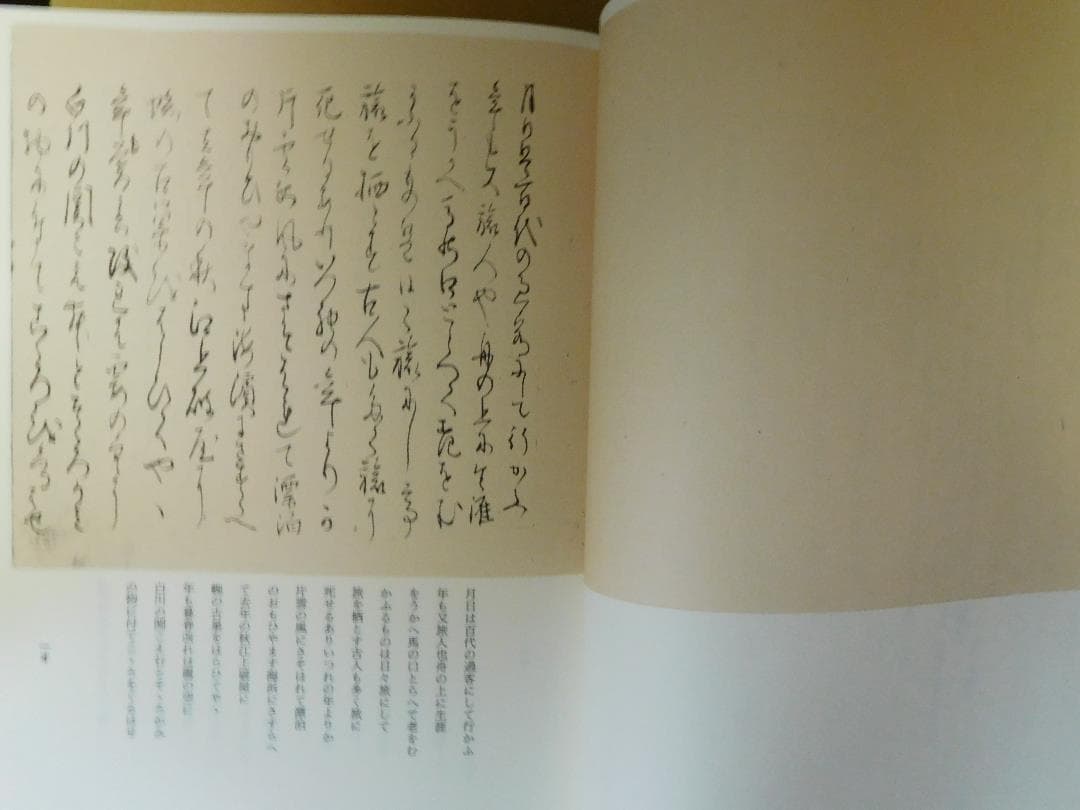 月日は百代の過客にして行かふ
年も又旅人也舟の上に生涯
をうかへ馬の口とらへて老をむ
かふるものは日々旅にして
旅を栖とす古人も多く旅に
死せるありいつれの年よりか
片雲の風にさそはれて漂泊
のおもひやます海浜にさすらへ
て去年の秋江上破屋に
蜘の古巣をはらひてやゝ
年も暮春改れは霞の空に
白川の関こえむとそゝろかみ
の物に付てこゝろをくるはせ
月日は百代の過客にして行かふ
年も又旅人也舟の上に生涯
をうかへ馬の口とらへて老をむ
かふるものは日々旅にして
旅を栖とす古人も多く旅に
死せるありいつれの年よりか
片雲の風にさそはれて漂泊
のおもひやます海浜にさすらへ
て去年の秋江上破屋に
蜘の古巣をはらひてやゝ
年も暮春改れは霞の空に
白川の関こえむとそゝろかみ
の物に付てこゝろをくるはせ